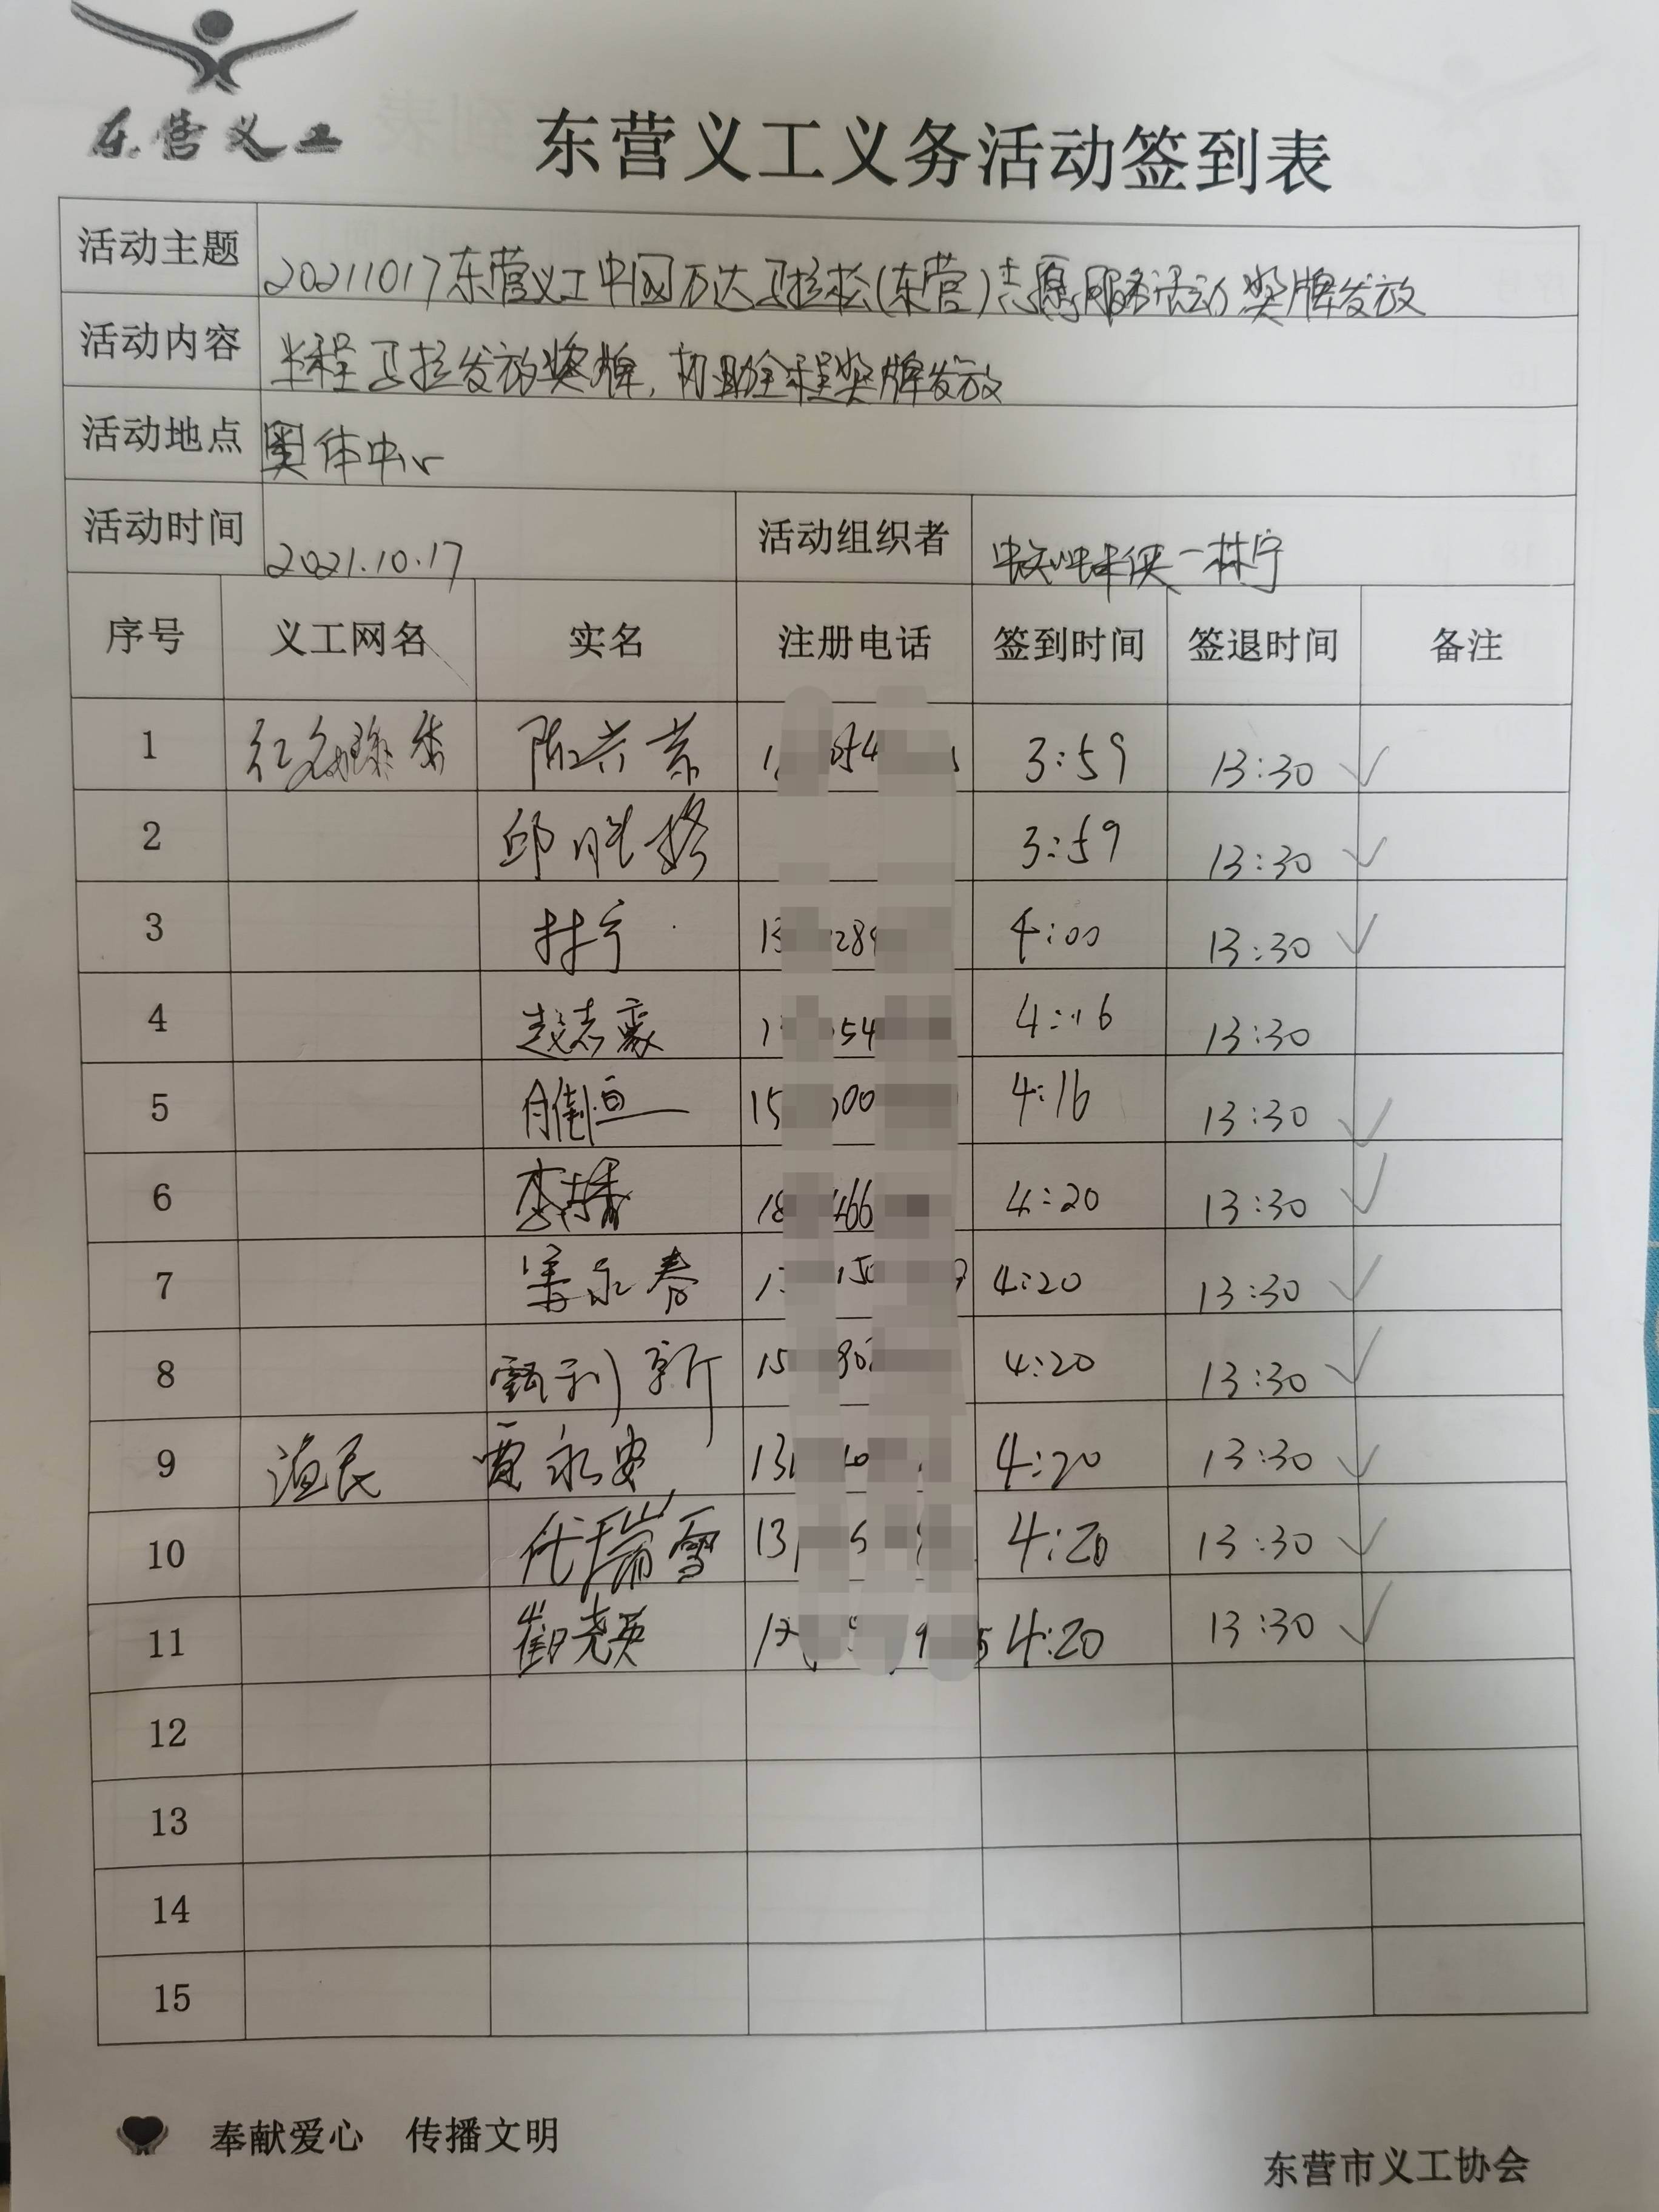 东营义工
东营义工义务活动签到表
活动主题 20211017东营义工中国万达马拉松(东营)志愿服务活动奖牌发放
活动内容 半程马拉发放奖牌,协助全程奖牌发放
活动地点 奥体中心
活动时间 2021.10.17 活动组织者 林宁
序号 义工网名 实名 注册电话 签到时间 签退时间 备注
1 陈兴 3:59 13:30 ✓
2 邱胜 3:59 13:30 ✓
3 林宁 4:00 13:30 ✓
4 赵志豪 4:16 13:30
5 4:16 13:30 ✓
6 李 4:20 13:30 ✓
7 永春 4:20 13:30 ✓
8 甄利新 4:20 13:30 ✓
9 渔民 贾永安 4:20 13:30 ✓
10 代瑞雪 4:20 13:30 ✓
11 崔晓英 4:20 13:30 ✓
12
13
14
15
奉献爱心 传播文明
东营市义工协会